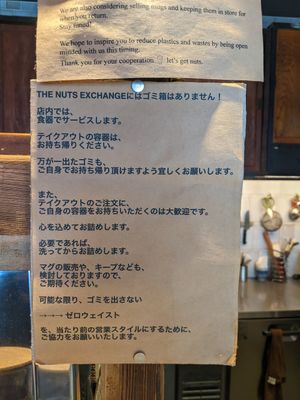 We are also considering selling mugs and keeping them in store for
when you return.
Stay tuned!
We hope to inspire you to reduce plastics and wastes by being open
minded with us this timing.
Thank you for your cooperation let's get nuts.
THE NUTS EXCHANGEにはゴミ箱はありません！
店内では、
食器でサービスします。
テイクアウトの容器は、
お持ち帰りください。
万が一出たゴミも、
ご自身でお持ち帰り頂けますよう宜しくお願いします。
また、
テイクアウトのご注文に、
ご自身の容器をお持ちいただくのは大歓迎です。
心を込めてお詰めします。
必要であれば、
洗ってからお詰めします。
マグの販売や、キープなども、
検討しておりますので、
ご期待ください。
可能な限り、ゴミを出さない
→→→ ゼロウェイスト
を、当たり前の営業スタイルにするために、
ご協力をお願いいたします。